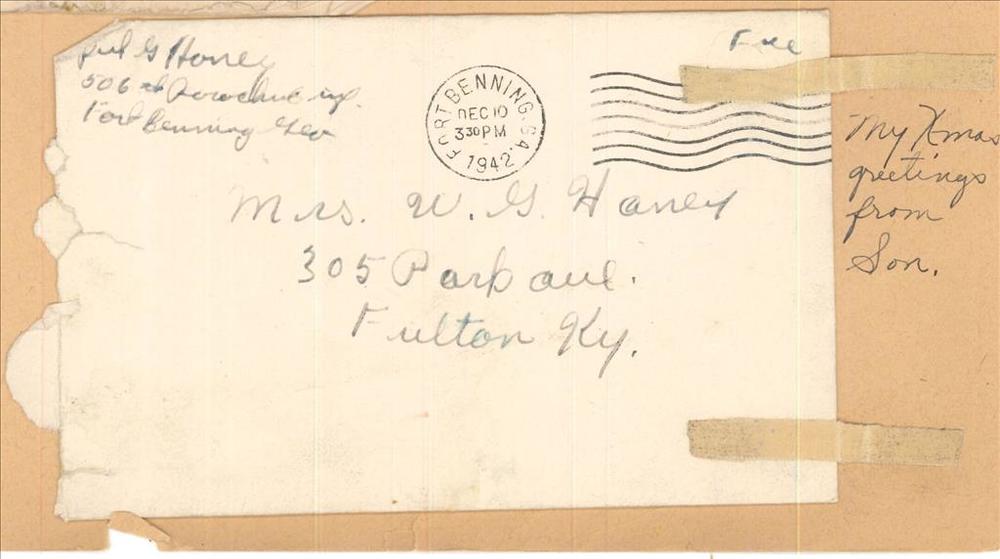 G Haney
506
Fort Benning Geo
Free
FORT BENNING, GA.
DEC 10
3 30 PM
1942
Mrs. W. G. Haney
305 Park ave.
Fulton Ky.
My Xmas
greetings
from
Son.